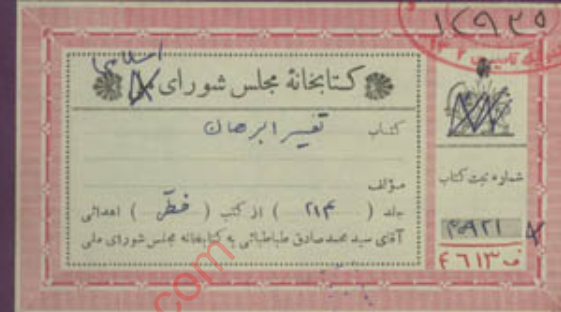 ۱۲۹۲۵
اسلامی
کتابخانهٔ مجلس شورای
کتاب تفسیر البرهان
مؤلف
جلد ( ۲۱۴ ) از کتب ( خطّی ) اهدائی
آقای سید محمدصادق طباطبائی به کتابخانهٔ مجلس شورای ملی
شماره ثبت کتاب
۲۰۹۲۱
ف ۴۶۱۳
com